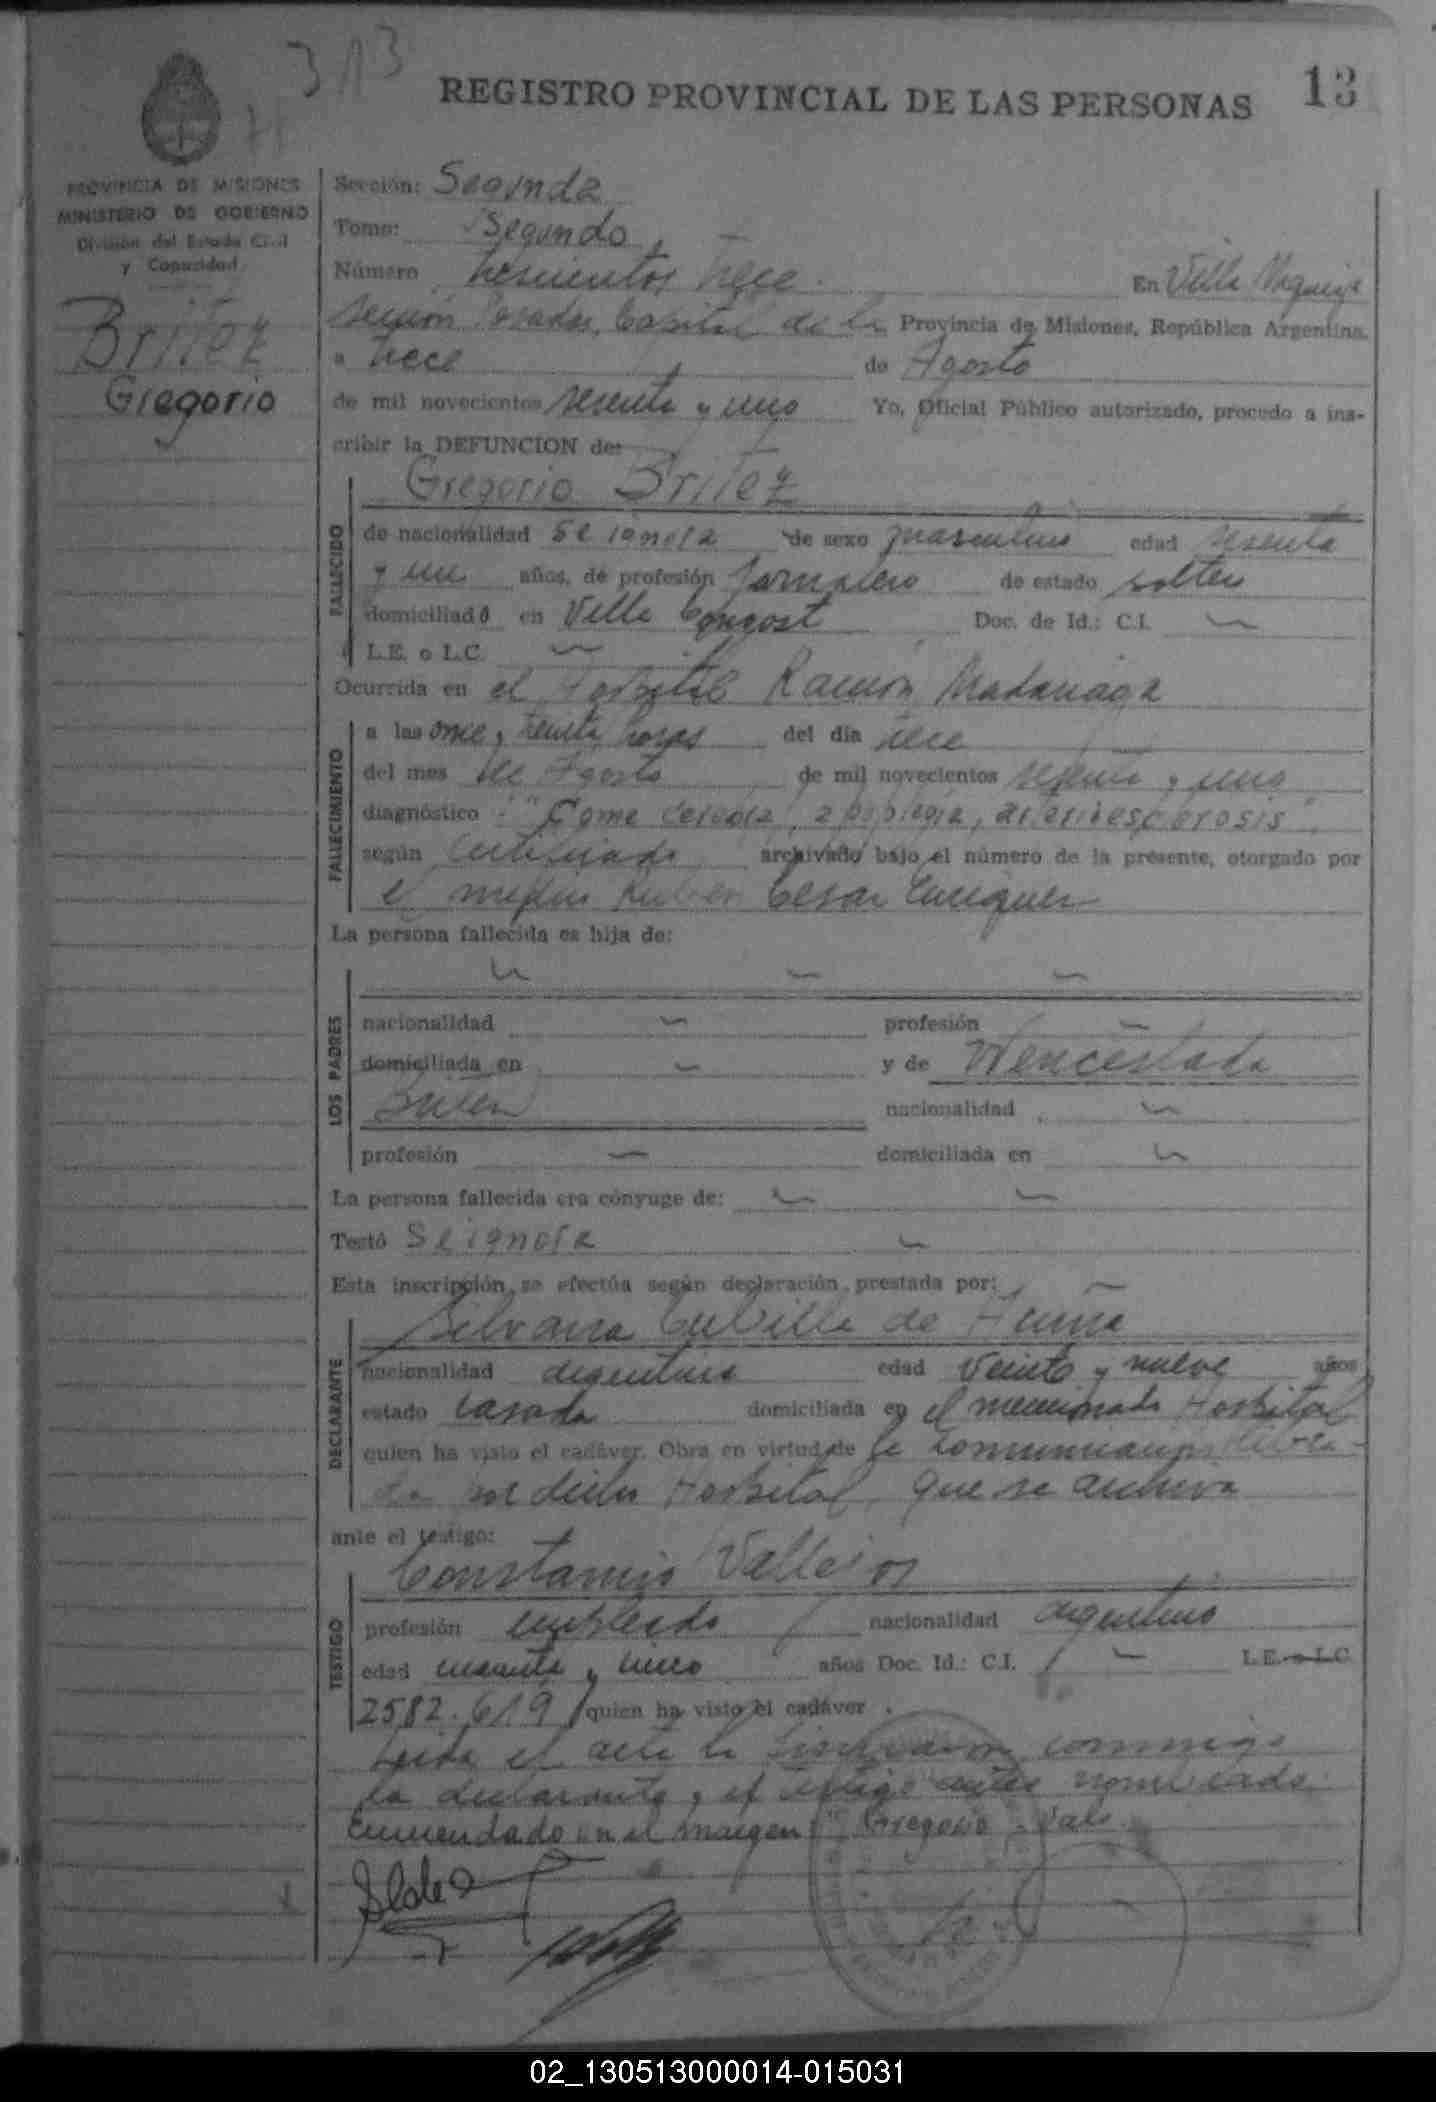 313
REGISTRO PROVINCIAL DE LAS PERSONAS 13
PROVINCIA DE MISIONES
MINISTERIO DE GOBIERNO
División del Estado Civil
y Capacidad
Britez
Gregorio
Sección: Segunda
Tomo: Segundo
Número trescientos trece. En Villa Urquiza
sección Posadas, Capital de la Provincia de Misiones, República Argentina,
a trece de Agosto
de mil novecientos sesenta y uno Yo, Oficial Público autorizado, procedo a ins-
cribir la DEFUNCION de:
Gregorio Britez
FALLECIDO
de nacionalidad se ignora de sexo masculino edad sesenta
y un años, de profesión jornalero de estado soltero
domiciliado en Villa Doc. de Id.: C.I. —
L.E. o L.C. —
Ocurrida en el Hospital Ramón Madariaga
FALLECIMIENTO
a las once, treinta horas del día trece
del mes de Agosto de mil novecientos sesenta y uno
diagnóstico "Coma cerebral, apoplegia, arterioesclerosis",
según certificado archivado bajo el número de la presente, otorgado por
el médico Ruben Cesar Enriquez
La persona fallecida es hija de:
— — —
LOS PADRES
nacionalidad — profesión —
domiciliada en — y de Wenceslada
Britez nacionalidad —
profesión — domiciliada en —
La persona fallecida era cónyuge de: — —
Testó Se ignora —
Esta inscripción se efectúa según declaración prestada por:
Silvana Cubilla de Acuña
DECLARANTE
nacionalidad argentina edad veinte y nueve años
estado casada domiciliada en el mencionado Hospital
quien ha visto el cadáver. Obra en virtud de la comunicación
por dicho Hospital, que se archiva
ante el testigo:
Constancio Vallejos
TESTIGO
profesión empleado nacionalidad argentino
edad cuarenta y cinco años Doc. Id.: C.I. — L.E. o L.C.
2582.619 quien ha visto el cadáver.
Leida el acta la firmaron conmigo
la declarante y el testigo antes nombrado.
Enmendado en el margen: "Gregorio". Vale.
02_130513000014-015031